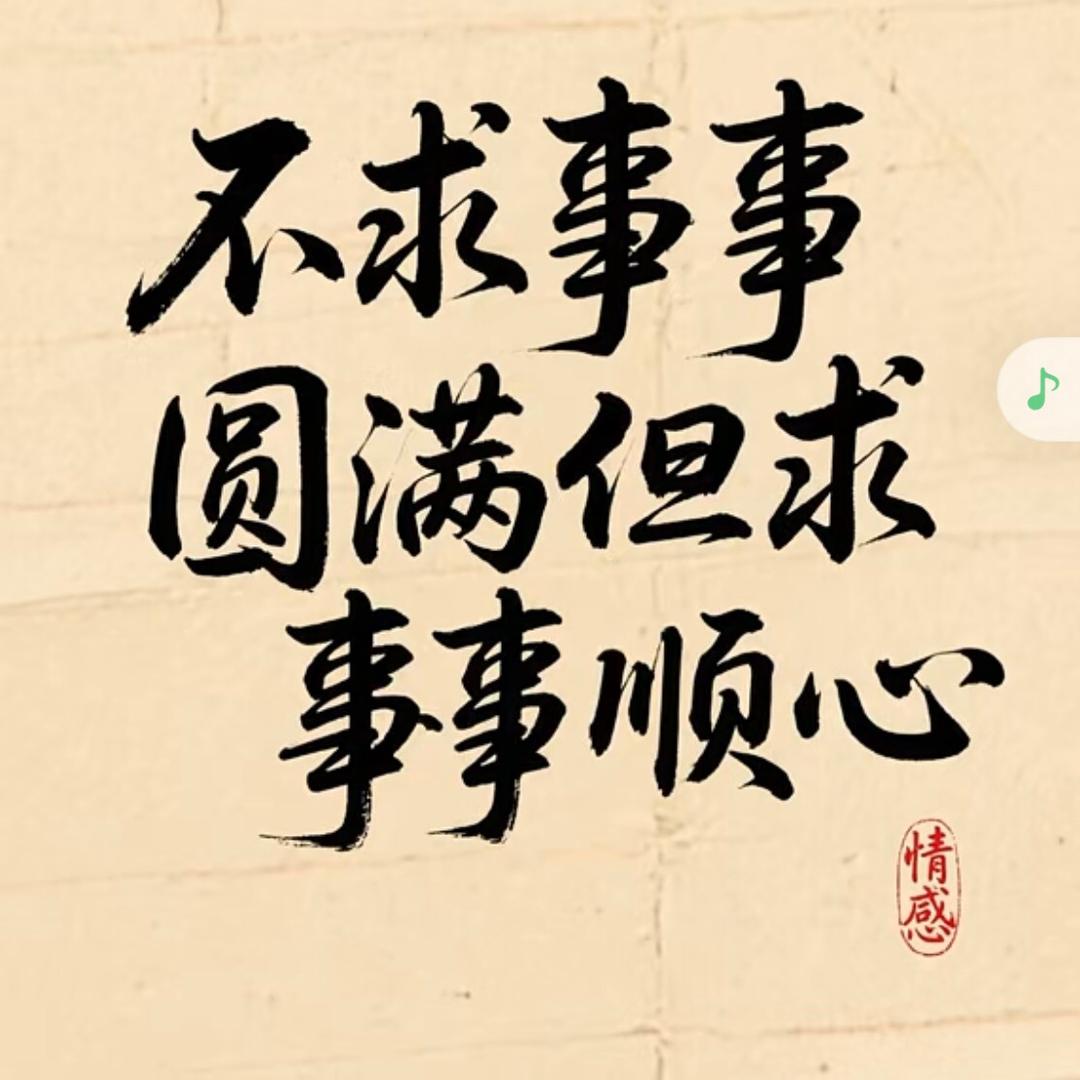 不求事事
圆满但求
事事顺心
情感